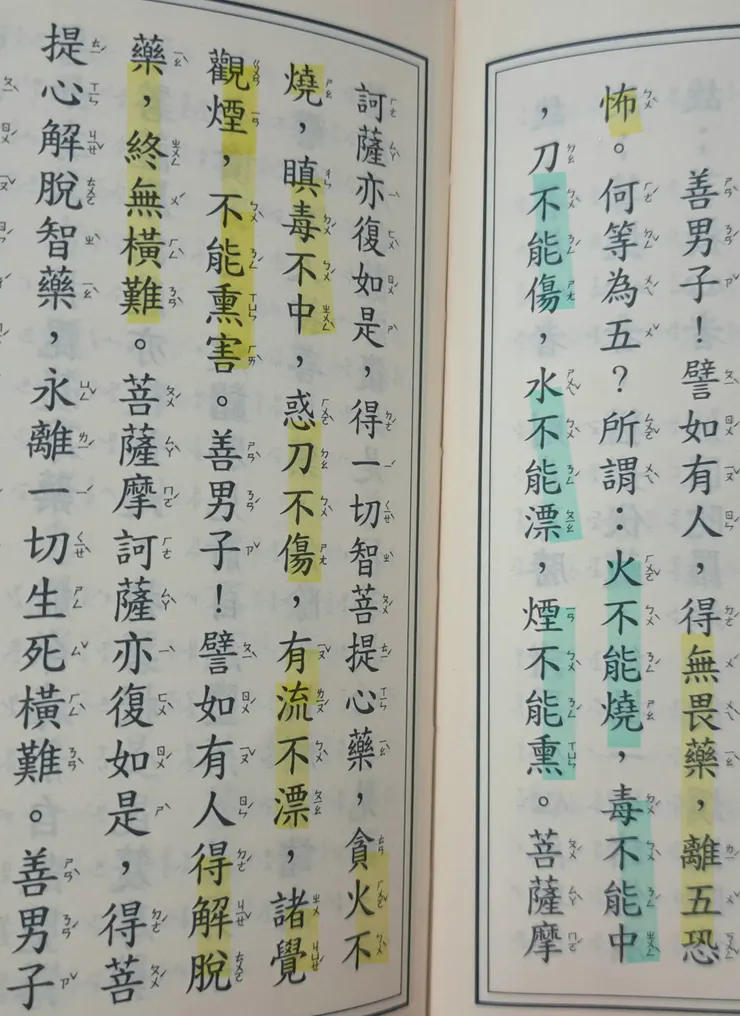 善男子！譬如有人，得無畏藥，離五恐
怖。何等為五？所謂：火不能燒，毒不能中
，刀不能傷，水不能漂，煙不能熏。菩薩摩
訶薩亦復如是，得一切智菩提心藥，貪火不
燒，瞋毒不中，惑刀不傷，有流不漂，諸覺
觀煙，不能熏害。善男子！譬如有人得解脫
藥，終無橫難。菩薩摩訶薩亦復如是，得菩
提心解脫智藥，永離一切生死橫難。善男子